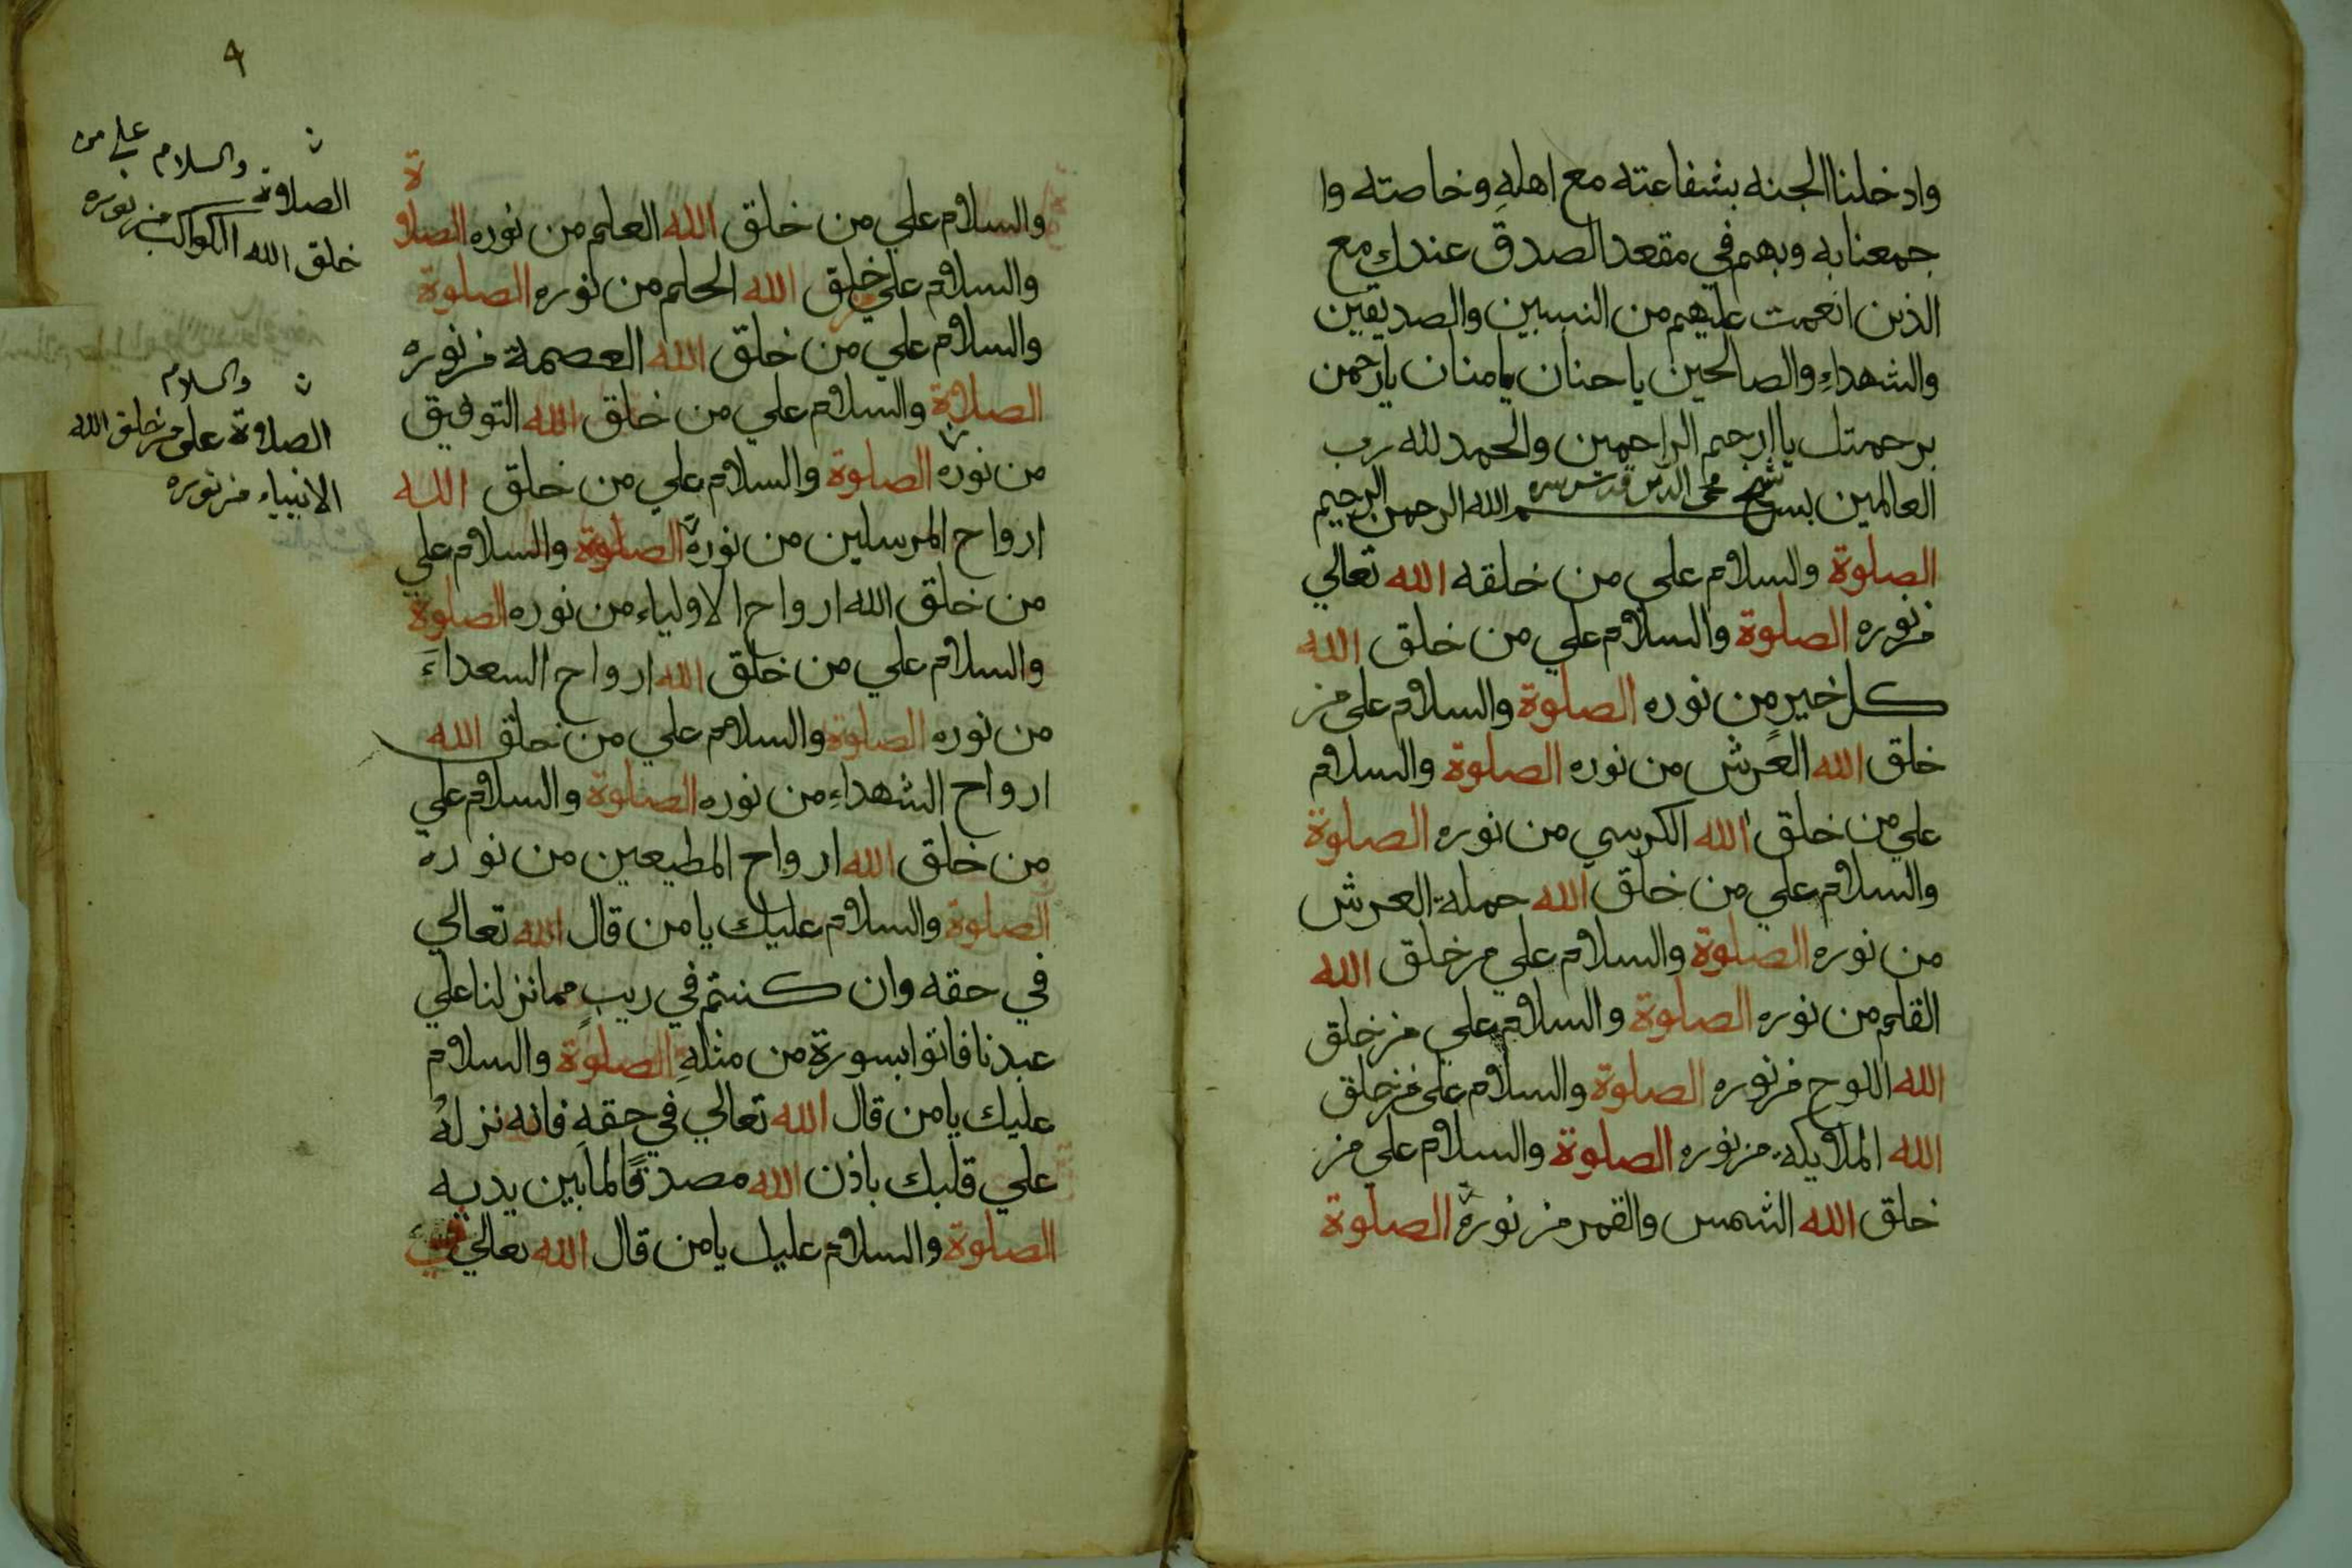 وادخلنا الجنه بشفاعته مع اهلهِ وخاصته وا
جمعنا به وبهم في مقعد الصدق عندك مع
الذين انعمت عليهم من النبيين والصديقين
والشهداءِ والصالحين يا حنان يا منان يا رحمن
برحمتك يا ارحم الراحمين والحمد لله رب
شيخ محى الدين قدس سره
العالمين بسم الله الرحمن الرحيم
الصلوة والسلام على من خلقه الله تعالي
من نوره الصلوة والسلام علي من خلق الله
كل خيرٍ من نوره الصلوة والسلام على من
خلق الله العرش من نوره الصلوة والسلام
علي من خلق الله الكرسي من نوره الصلوة
والسلام علي من خلق الله حملة العرش
من نوره الصلوة والسلام علي من خلق الله
القلم من نوره الصلوة والسلام علي من خلق
الله اللوح من نوره الصلوة والسلام على من خلق
الله الملايكة من نوره الصلوة والسلام علي من
خلق الله الشمس والقمر من نوره الصلوة
٩
والسلام علي من خلق الله العلم من نوره الصلاة
والسلام علي من خلق الله الحلم من نوره الصلوة
والسلام علي من خلق الله العصمة من نوره
الصلاة والسلام علي من خلق الله التوفيق
من نوره الصلوة والسلام علي من خلق الله
ارواح المرسلين من نوره الصلوة والسلام علي
من خلق الله ارواح الاولياء من نوره الصلوة
والسلام علي من خلق الله ارواح السعداءَ
من نوره الصلوة والسلام علي من خلق الله
ارواح الشهداءِ من نوره الصلوة والسلام علي
من خلق الله ارواح المطيعين من نوره
الصلوة والسلام عليك يا من قال الله تعالي
في حقه وان كنتم في ريبٍ مما نزلنا علي
عبدنا فاتوا بسورةٍ من مثلهِ الصلوة والسلام
عليك يا من قال الله تعالي في حقهِ فانه نزلهُ
علي قلبك باذن الله مصدقًا لما بين يديه
الصلوة والسلام عليك يا من قال الله تعالي في
الصلاة والسلام على من
خلق الله الكواكب من نوره
الصلاة والسلام على من خلق الله
الانبياء من نوره